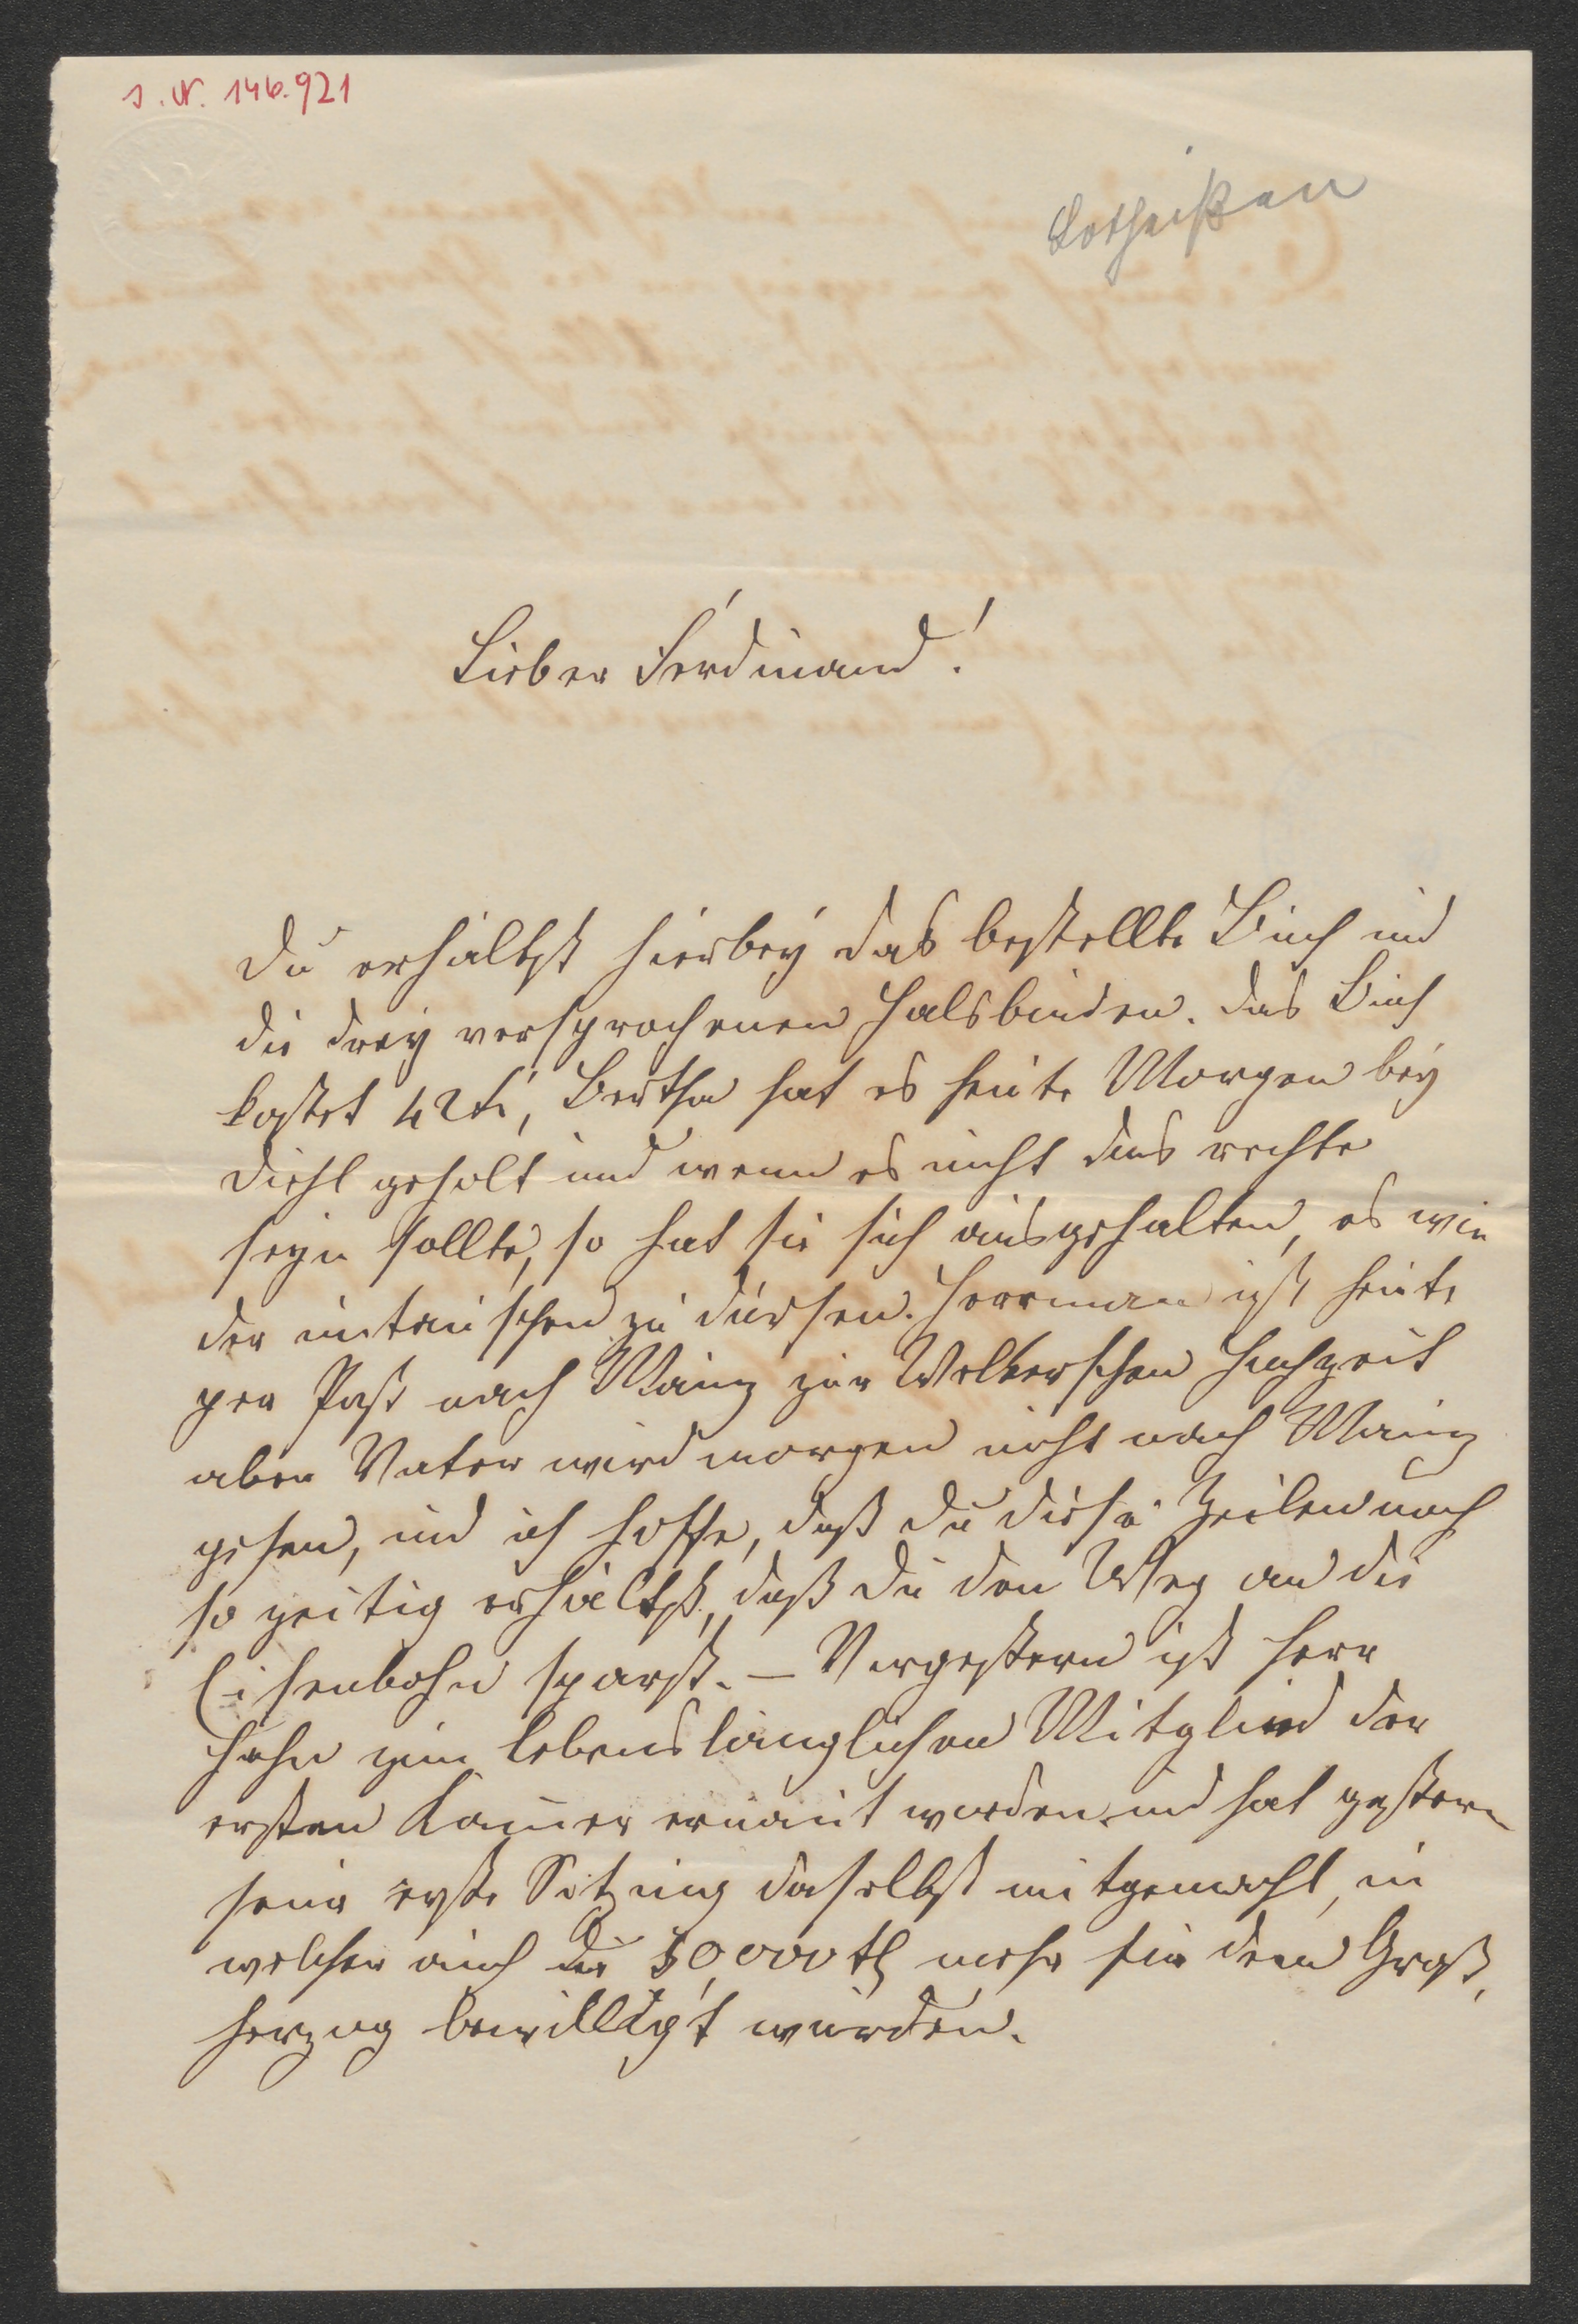 J. N. 146.921
Lotheißen
Lieber Ferdinand!
Du erhältst hierbey das bestellte Buch und
die drey versprochenen Halsbinden. Das Buch
kostet 42 Bertha hat es heute Morgen bey
Diehl geholt und wenn es nicht das rechte
seyn sollte, so hat sie sich ausgehalten, es wie
der umtauschen zu dürfen. Herrman ist heute
per Post nach Mainz zur Hochzeit
aber Vater wird morgen nicht nach Mainz
gehen, und ich hoffe, daß Du diese Zeilen noch
so zeitig erhältst, daß Du den Weg an die
Eisenbahn sparst. – Vorgestern ist Herr
Hahn zum lebenslänglichen Mitglied der
ersten Kam̅er ernan̅t worden und hat gestern
seine erste Sitzung daselbst mitgemacht, in
welcher auch die 30,000 fl mehr für den Groß,
herzog bewilligt wurden.